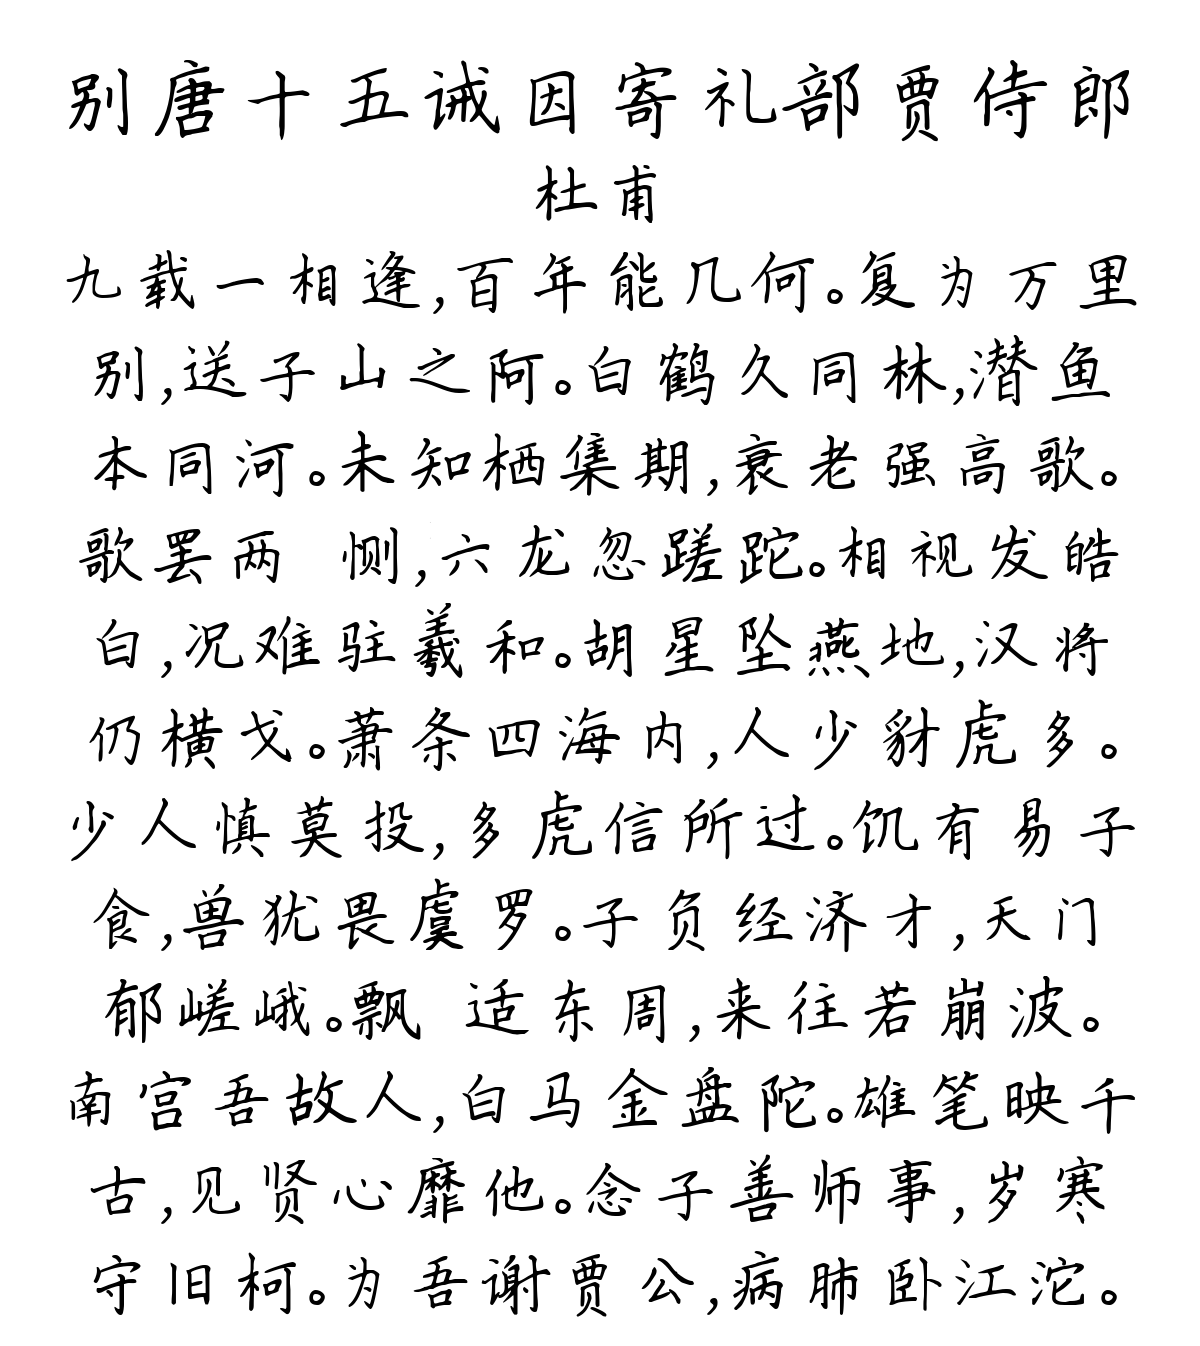 别唐十五诫因寄礼部贾侍郎
杜甫
九载一相逢,百年能几何。复为万里
别,送子山之阿。白鹤久同林,潜鱼
本同河。未知栖集期,衰老强高歌。
歌罢两 恻,六龙忽蹉跎。相视发皓
白,况难驻羲和。胡星坠燕地,汉将
仍横戈。萧条四海内,人少豺虎多。
少人慎莫投,多虎信所过。饥有易子
食,兽犹畏虞罗。子负经济才,天门
郁嵯峨。飘 适东周,来往若崩波。
南宫吾故人,白马金盘陀。雄笔映千
古,见贤心靡他。念子善师事,岁寒
守旧柯。为吾谢贾公,病肺卧江沱。